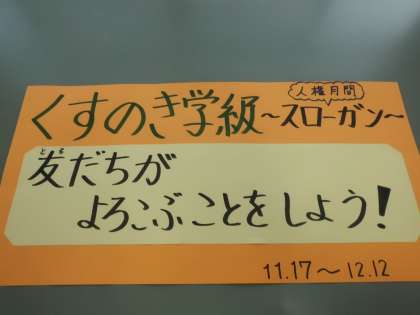 人権月間
くすのき学級～スローガン～
とも
友だちが
よろこぶことをしよう!
11.17～12.12